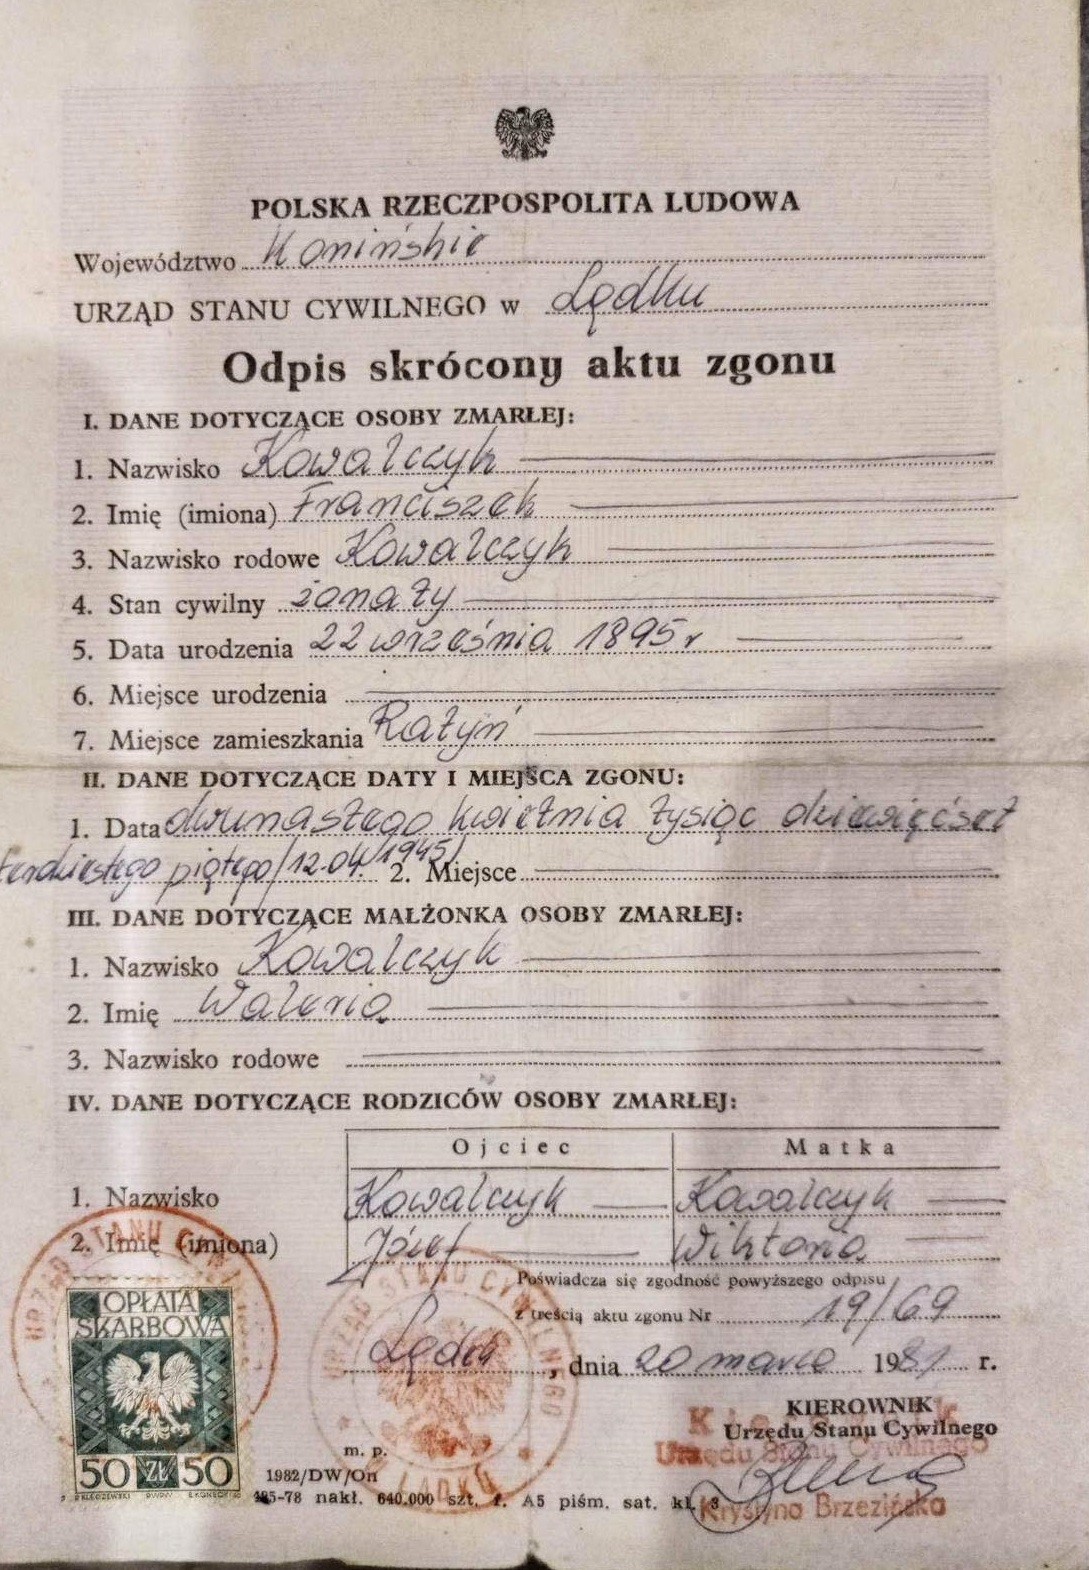 POLSKA RZECZPOSPOLITA LUDOWA
Województwo Konińskie
URZĄD STANU CYWILNEGO w Lądku
Odpis skrócony aktu zgonu
I. DANE DOTYCZĄCE OSOBY ZMARŁEJ:
1. Nazwisko Kowalczyk
2. Imię (imiona) Franciszek
3. Nazwisko rodowe Kowalczyk
4. Stan cywilny żonaty
5. Data urodzenia 22 września 1895 r
6. Miejsce urodzenia
7. Miejsce zamieszkania Ratyń
II. DANE DOTYCZĄCE DATY I MIEJSCA ZGONU:
1. Data dwunastego kwietnia tysiąc dziewięćset
terdziestego piątego /12.04.1945/ 2. Miejsce
III. DANE DOTYCZĄCE MAŁŻONKA OSOBY ZMARŁEJ:
1. Nazwisko Kowalczyk
2. Imię Waleria
3. Nazwisko rodowe
IV. DANE DOTYCZĄCE RODZICÓW OSOBY ZMARŁEJ:
Ojciec Matka
1. Nazwisko Kowalczyk Kowalczyk
2. Imię (imiona) Józef Wiktoria
Poświadcza się zgodność powyższego odpisu
z treścią aktu zgonu Nr 19/69
Lądek, dnia 20 marca 1981 r.
URZĄD STANU CYWILNEGO
W LĄDKU
OPŁATA
SKARBOWA
50 ZŁ 50
KIEROWNIK
Urzędu Stanu Cywilnego
Kierownik
Urzędu Stanu Cywilnego
Krystyna Brzezińska
m. p.
1982/DW/On
485-78 nakł. 640.000 szt. f. A5 piśm. sat. kl. 3